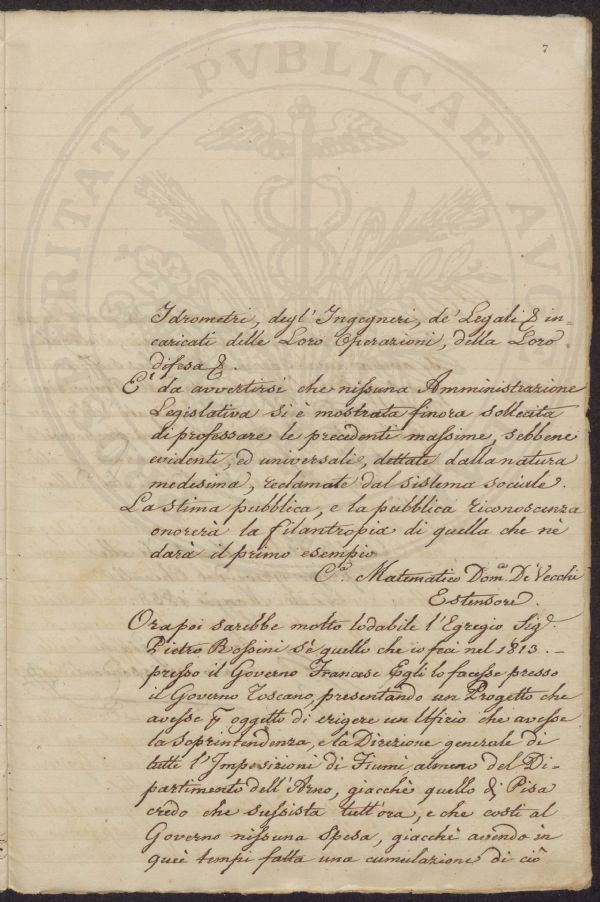 7
VERITATI PVBLICAE
Idrometri, degl' Ingegneri, de' Legali & in=
caricati delle Loro Operazioni, della Loro
difesa &.
E' da avvertirsi che nissuna Amministrazione
Legislativa si è mostrata finora sollecita
di professare le precedenti massime, sebbene
evidenti, ed universali, dettate dalla natura
medesima, reclamate dal sistema sociale.
La stima pubblica, e la pubblica riconoscenza
onorerà la filantropia di quella che nè
darà il primo esempio
C.º Matematico Dom.co De Vecchi
Estensore.
Ora poi sarebbe molto lodabile l'Egregio Sig.r
Pietro Rossini s'è quello che io feci nel 1813. –
presso il Governo Francese Egli lo facesse presso
il Governo Toscano, presentando un Progetto che
avesse p oggetto di erigere un Ufizio che avesse
la Soprintendenza, e la Direzione generale di
tutte l'Imposizioni di Fiumi almeno del Di-
partimento dell'Arno, giacchè quello di Pisa
credo che sussista tutt'ora, e che costi al
Governo nissuna Spesa, giacchè avendo in
quei tempi fatta una cumulazione di ciò